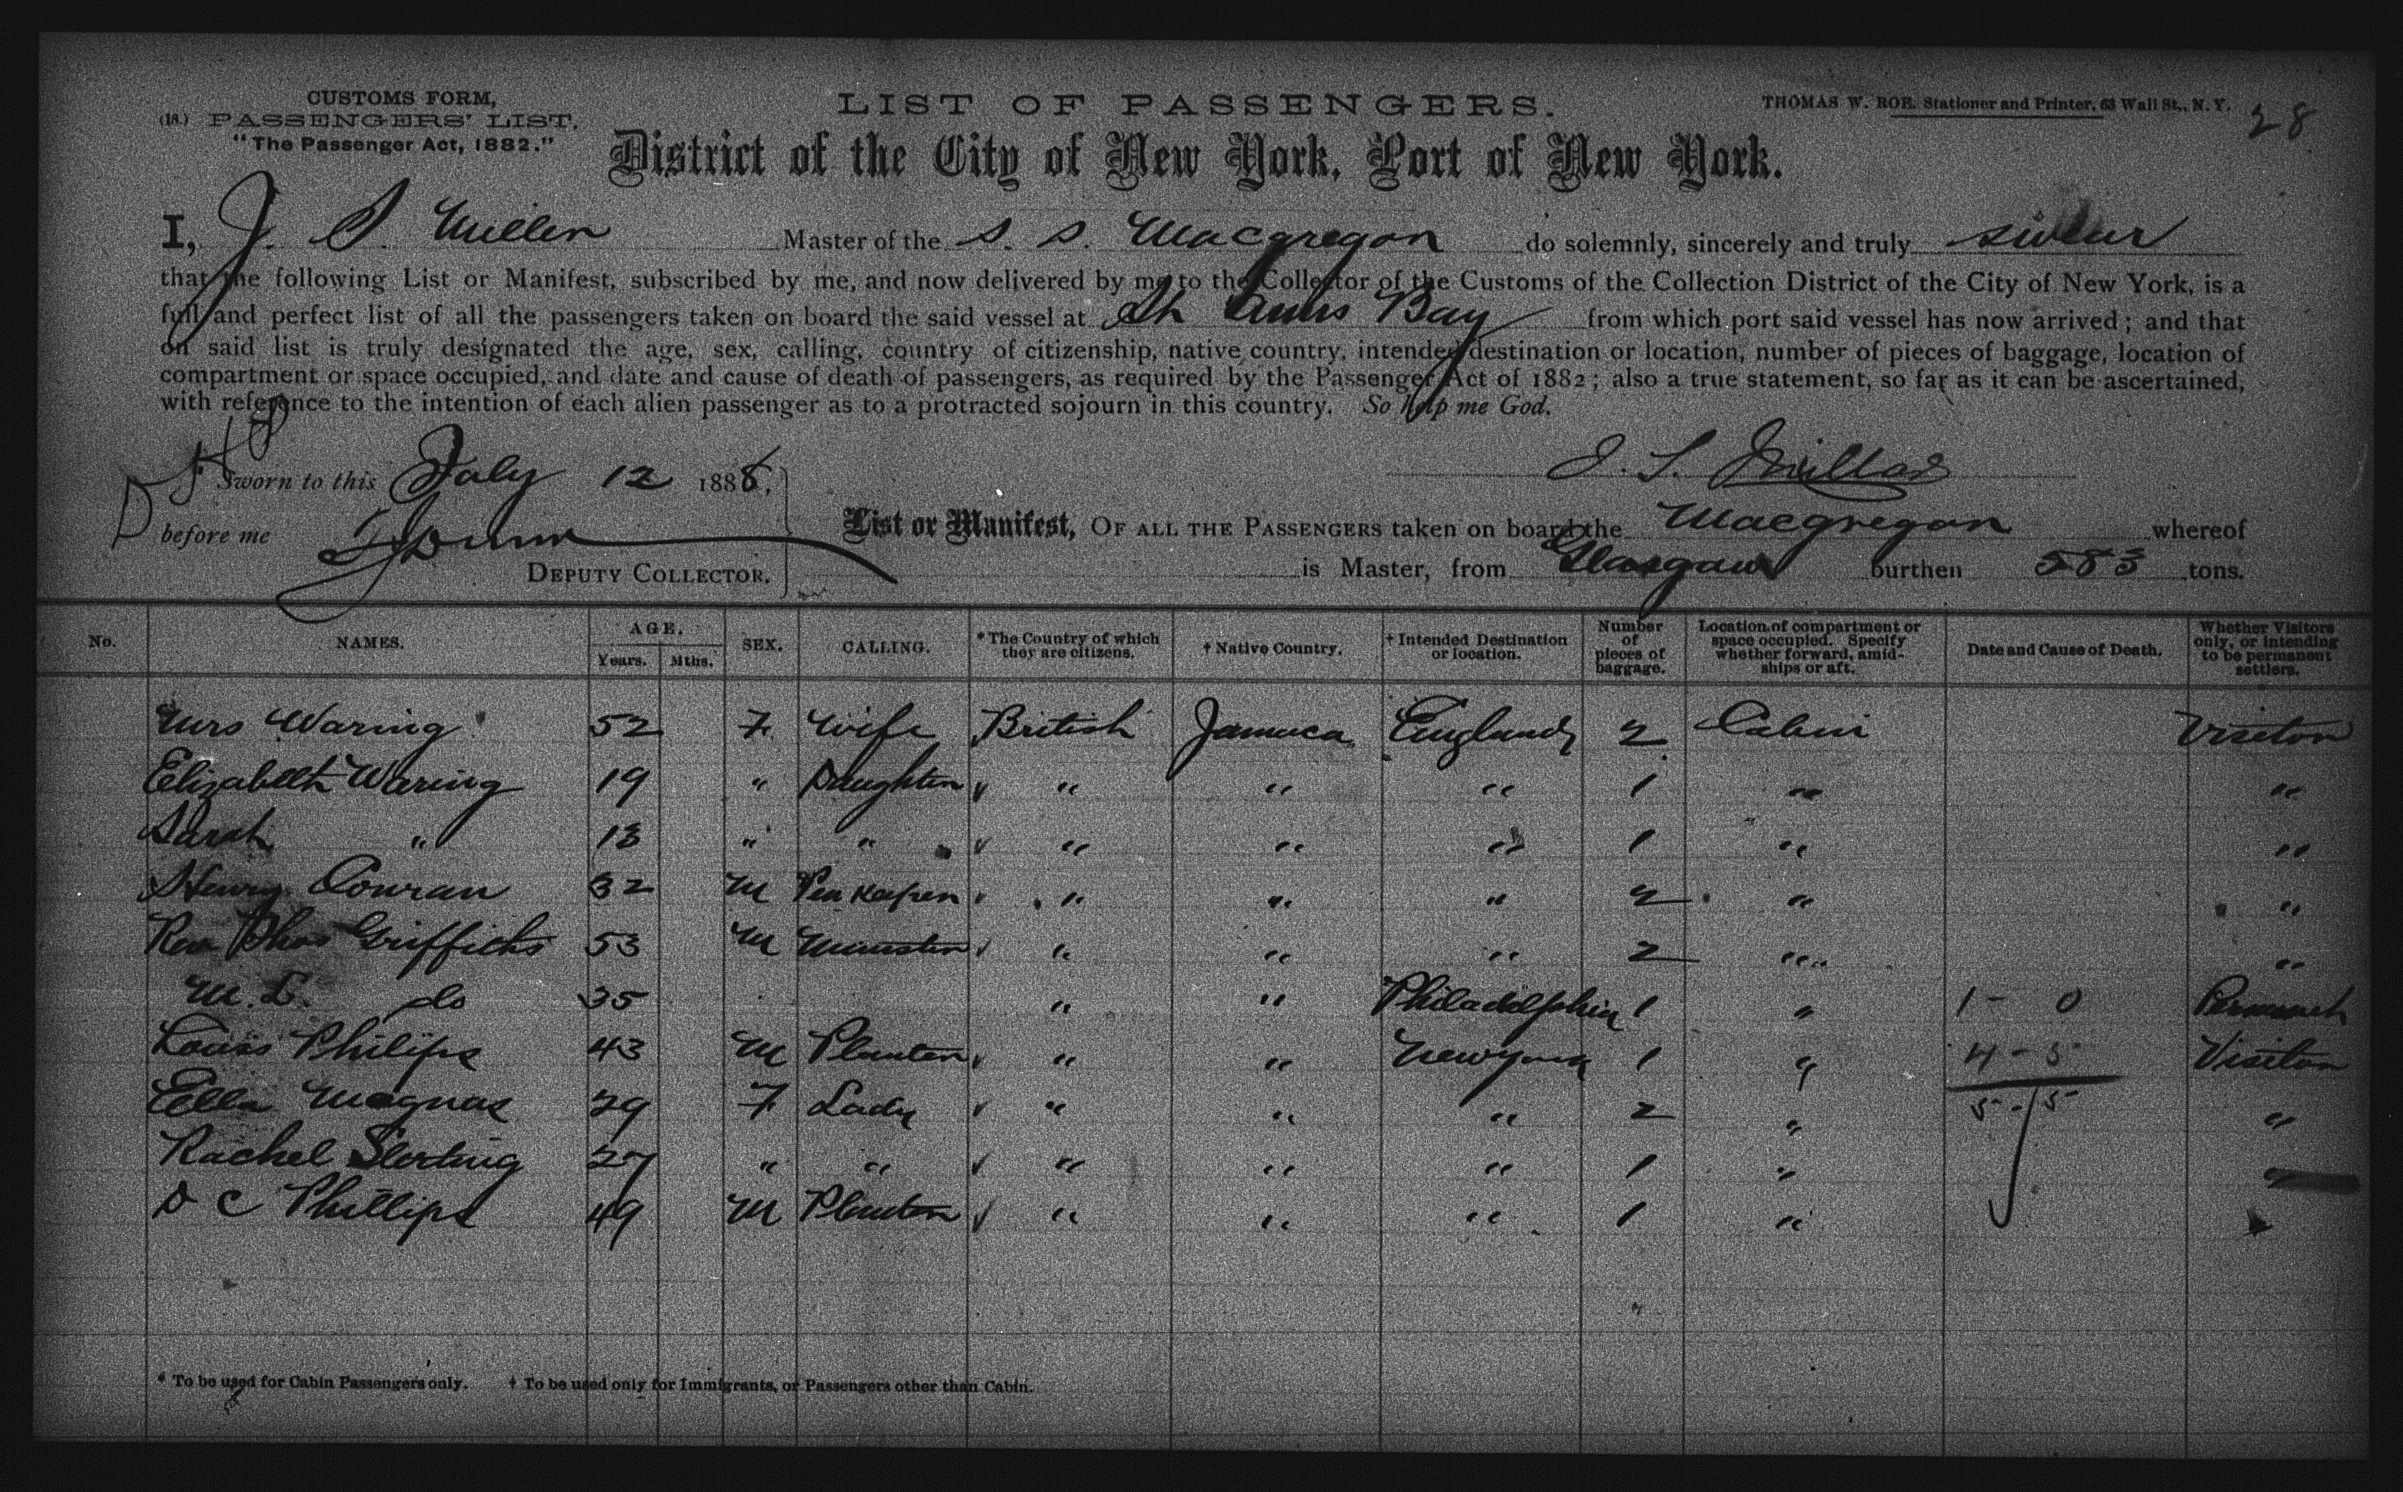 CUSTOMS FORM,
(18.) PASSENGERS' LIST.
"The Passenger Act, 1882."
LIST OF PASSENGERS.
THOMAS W. ROE. Stationer and Printer, 63 Wall St., N.Y.
28
District of the City of New York, Port of New York.
I, J. S. Miller Master of the S. S. Macgregor do solemnly, sincerely and truly swear
that the following List or Manifest, subscribed by me, and now delivered by me to the Collector of the Customs of the Collection District of the City of New York, is a
full and perfect list of all the passengers taken on board the said vessel at St Anns Bay from which port said vessel has now arrived; and that
on said list is truly designated the age, sex, calling, country of citizenship, native country, intended destination or location, number of pieces of baggage, location of
compartment or space occupied, and date and cause of death of passengers, as required by the Passenger Act of 1882; also a true statement, so far as it can be ascertained,
with reference to the intention of each alien passenger as to a protracted sojourn in this country. So help me God.
Sworn to this July 12 188
J. S. Millar
before me
DEPUTY COLLECTOR.
List or Manifest, OF ALL THE PASSENGERS taken on board the Macgregor whereof
is Master, from Glasgow burthen 583 tons.
No. NAMES. AGE. Years. Mths. SEX. CALLING. * The Country of which they are citizens. † Native Country. † Intended Destination or location. Number of pieces of baggage. Location of compartment or space occupied. Specify whether forward, amidships or aft. Date and Cause of Death. Whether Visitors only, or intending to be permanent settlers.
Mrs Waring 52 F Wife British Jamaica England 2 Cabin Visitor
Elizabeth Waring 19 " Daughter " " " 1 " "
Sarah " 13 " " " " " 1 " "
Henry Conran 32 M Pen Keeper " " " 2 " "
Rev Thos Griffiths 53 M Minister " " " 2 " "
M. L. do 35 " " Philadelphia 1 " 1 - 0 Permanent
Louis Philips 43 M Planter " " New York 1 " 4 - 5 Visitor
Ella Magnas 29 F Lady " " " 2 " 5 - 5 "
Rachel 27 " " " " " 1 " "
D C Phillips 49 M Planter " " " 1 " "
* To be used for Cabin Passengers only. † To be used only for Immigrants, or Passengers other than Cabin.